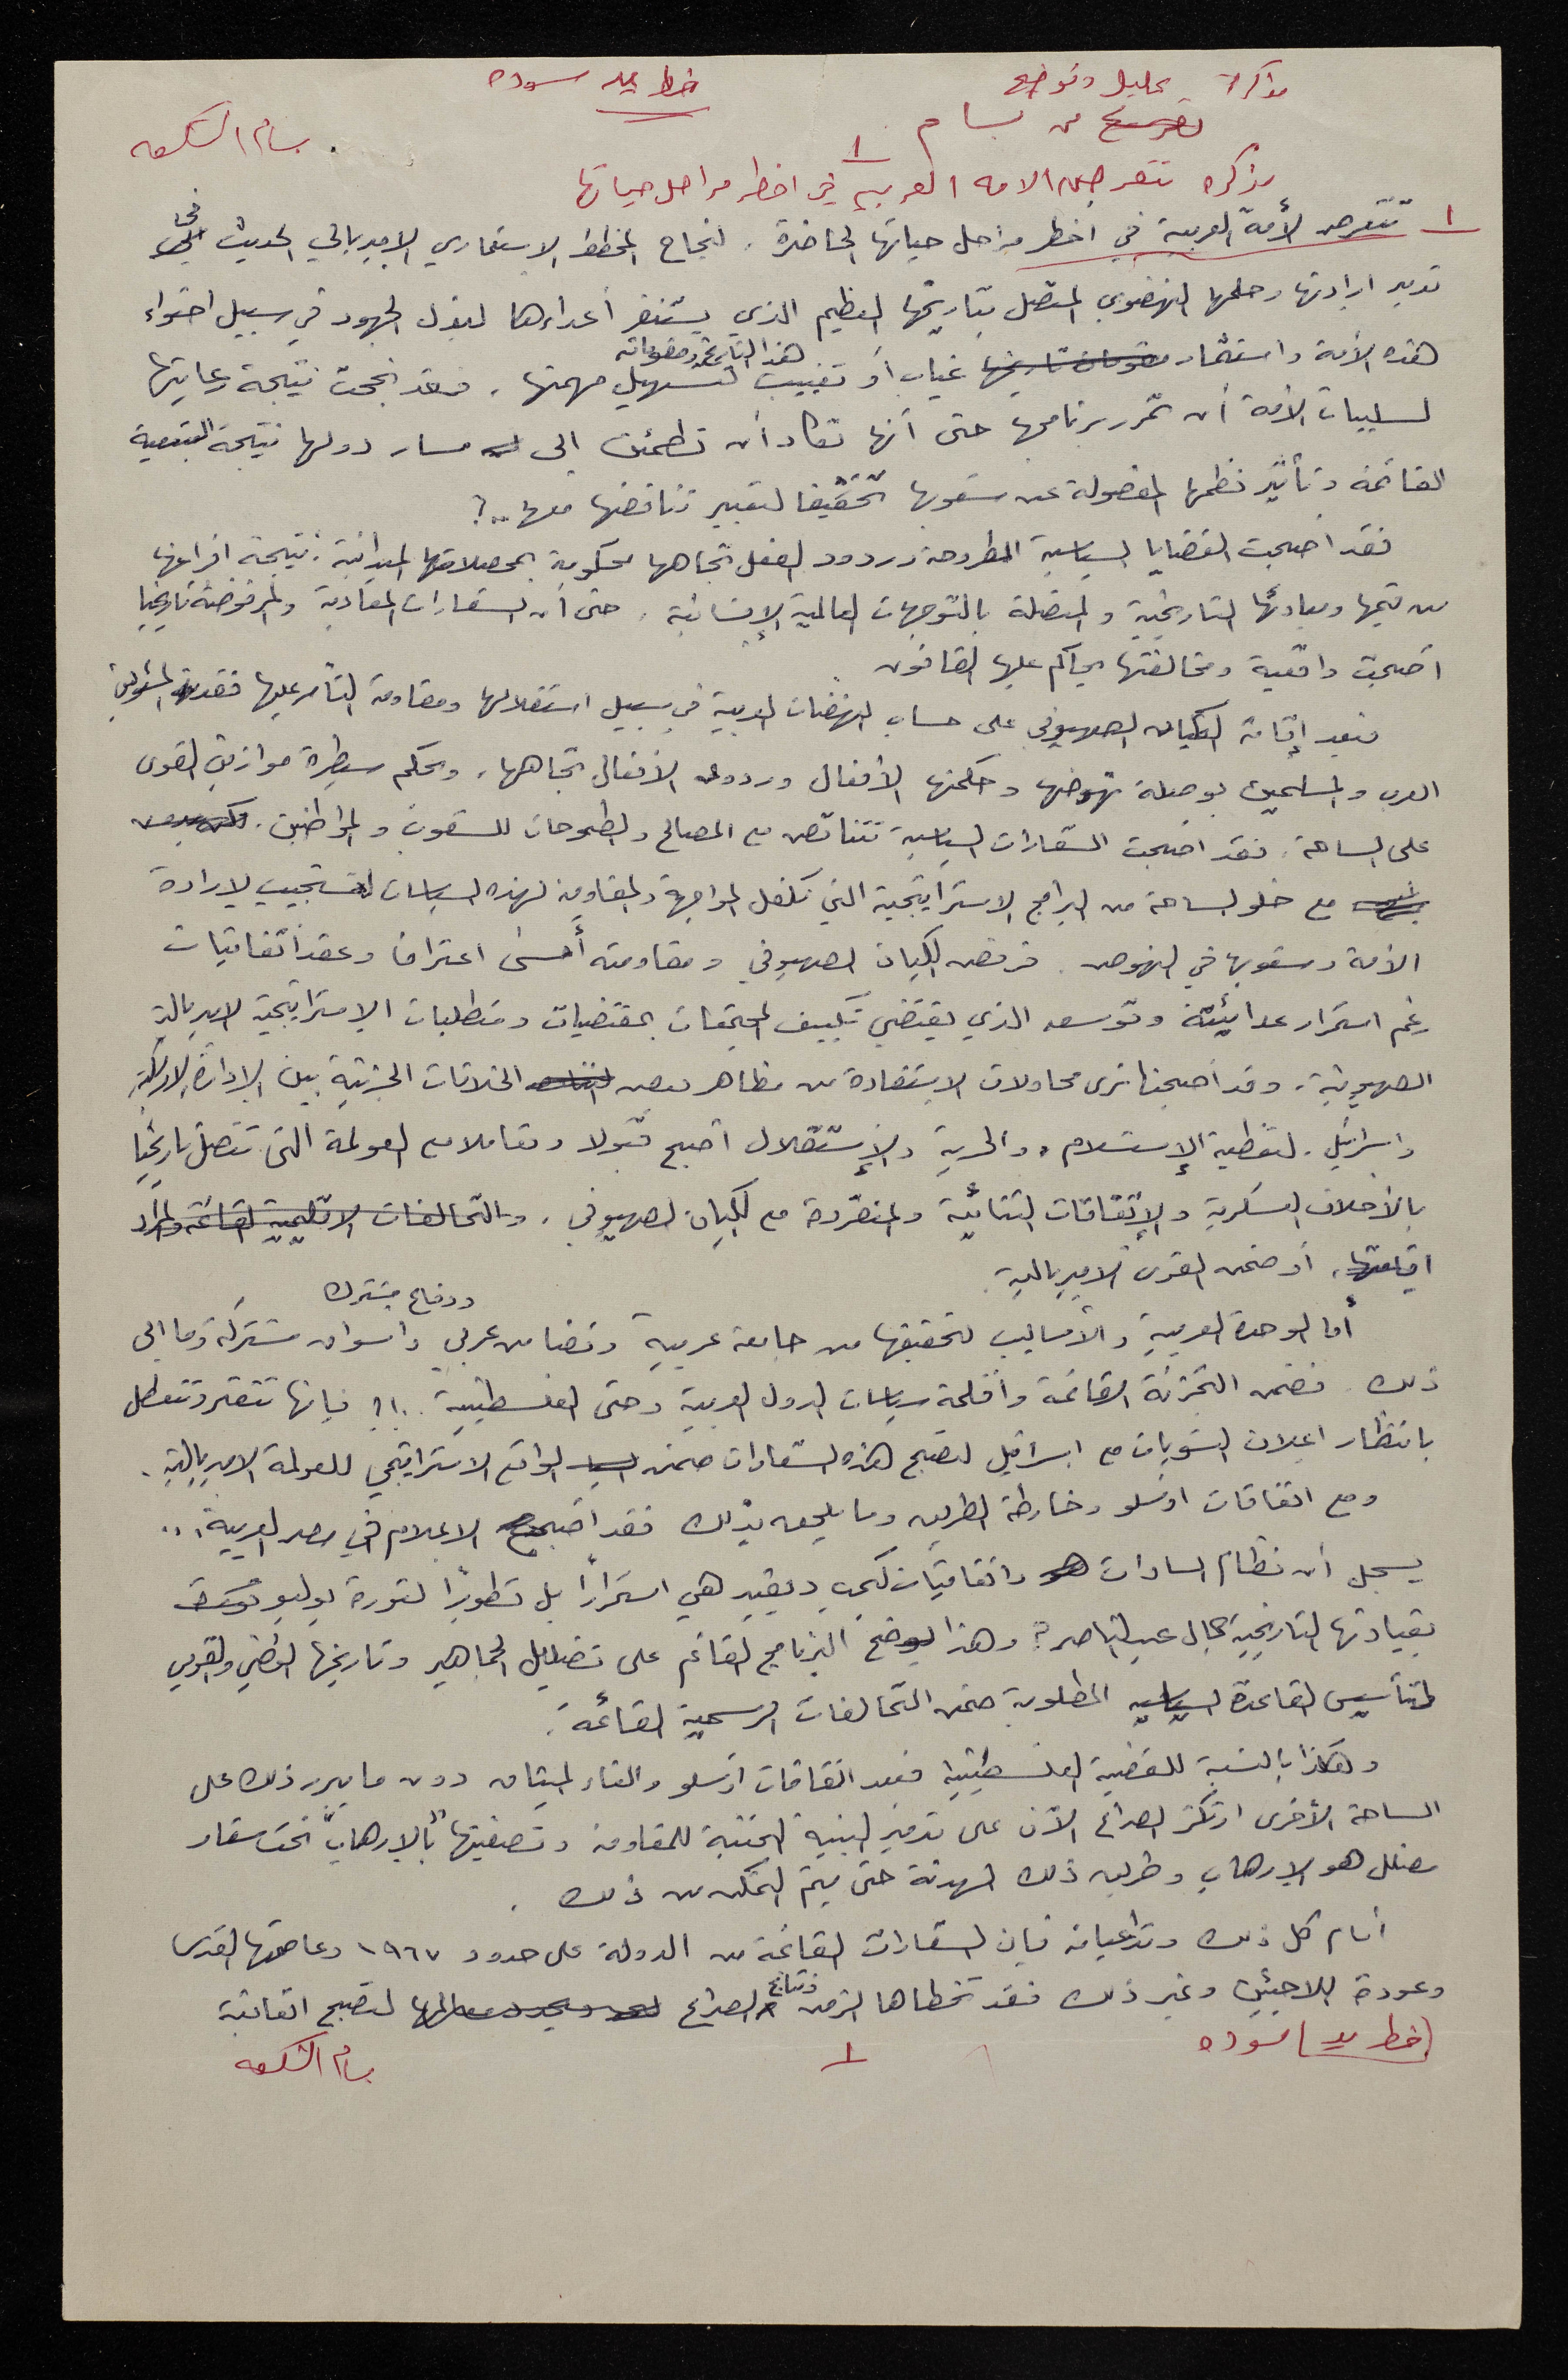 مذكرة تحليل وتوضيح
خط يد مسوده
تصريح من بسام
١
بسام الشكعه
مذكره تتعرض الامه العربيه في اخطر مراحل حياتها
١ تتعرض الأمة العربية في اخطر مراحل حياتها الحاضرة، لنجاح المخطط الاستعماري الامبريالي الحديث في
تدمير ارادتها وحلمها النهضوي المتصل بتاريخها العظيم الذي يستنفر أعداءها لبذل الجهود في سبيل احتواء
هذا التاريخ ومقوماته
هذه الأمة واستثمار مقومات تاريخها غياب أو تغييب لتسهيل مهمتها. فقد نجحت نتيجة رعايتها
لسلبيات الأمة أن تمرر برنامجها حتى أنها تكاد أن تطمئن الى مسار دولها نتيجة التبعية
القائمة وتأثير نظمها المفصولة عن شعوبها تحقيقا لتعبير تناقضها معها..؟
فقد اضحت القضايا السياسية المطروحة وردود الفعل تجاهها محكومة بمحصلاتها الميدانية، نتيجة افراغها
من قيمها ومبادئها التاريخية والمتصلة بالتوجهات العالمية الإنسانية، حتى أن الشعارات المعادية والمرفوضة تاريخيا
أضحت واقعية ومخالفتها يحاكم عليها القانون
فبعد إقامة الكيان الصهيوني على حساب النهضات العربية في سبيل استقلالها ومقاومة التآمر عليها فقد المسؤولين
العرب والمسلمين بوصلة نهوضها وحكمتها الأفعال وردود الأفعال تجاهها، وبحكم سيطرة موازين القوى
على الساحة، فقد اضحت الشعارات السياسية تتناقض مع المصالح والطموحات للشعوب والمواطنين.
مع خلو الساحة من البرامج الاستراتيجية التي تكفل المواجهة والمقاومة لهذه السياسات لتستجيب لإرادة
الأمة وشعوبها في النهوض. فرفض الكيان الصهيوني ومقاومته أمسى اعترافا وعقد اتفاقيات
رغم استمرار عدائيته وتوسعه الذي يقتضي تكييف المجتمعات بمقتضيات ومتطلبات الإستراتيجية الامبريالية
الصهيونية. وقد أصبحنا نرى محاولات الاستفادة من مظاهر بعض الخلافات الجزئية بين الإدارة الامريكية
واسرائيل. لتغطية الإستسلام، والحرية والإستقلال أصبح قبولا وتعاملا مع العولمة التي تتصل تاريخيا
بالأحلاف العسكرية والإتفاقات الثنائية والمنفردة مع الكيان الصهيوني. والتحالفات الاقليمية القائمة والمراد
اقامتها، أو ضمن القوى الامبريالية.
ودفاع مشترك
أما الوحدة العربية والأساليب لتحقيقها من جامعة عربية وتضامن عربي واسواق مشتركة وما الى
ذلك. فضمن التجزئة القائمة وأقلمة سياسات الدول العربية وحتى الفلسطينية..!! فإنها تتعثر وتتعطل
بانتظار اعلان التسويات مع اسرائيل لتصبح هذه الشعارات ضمن الواقع الاستراتيجي للعولمة الامبريالية.
ومع اتفاقات اوسلو وخارطة الطريق وما يلحق بذلك فقد أصبح الاعلام في مصر العربية...
يسجل أن نظام السادات واتفاقيات كمب ديفيد هي استمرارًا بل تطويرًا لثورة يوليو
بقيادتها التاريخية جمال عبد الناصر؟ وهذا يوضح البرنامج القائم على تضليل الجماهير وتاريخها الوطني والقومي
لتأسيس القاعدة السياسيه المطلوبة ضمن التحالفات الرسمية القائمة.
وهكذا بالنسبة للقضية الفلسطينية فبعد اتفاقات اوسلو والغاء الميثاق دون ما يبرر ذلك على
الساحة الأخرى ارتكز الصراع الآن على تدمير البنية التحتية للمقاومة وتصفيتها "بالإرهاب" تحت شعار
مضلل هو الارهاب وطريق ذلك الهدنة حتى يتم التمكن من ذلك.
أمام كل ذلك وتداعياته فإن الشعارات القائمة من الدولة على حدود ١٩٦٧ وعاصمتها القدس
ونتائج
وعودة اللاجئين وغير ذلك فقد تخطاها الزمن الصراع لتصبح اتفاقية
(خط يد) مسوده
١
بسام الشكعه